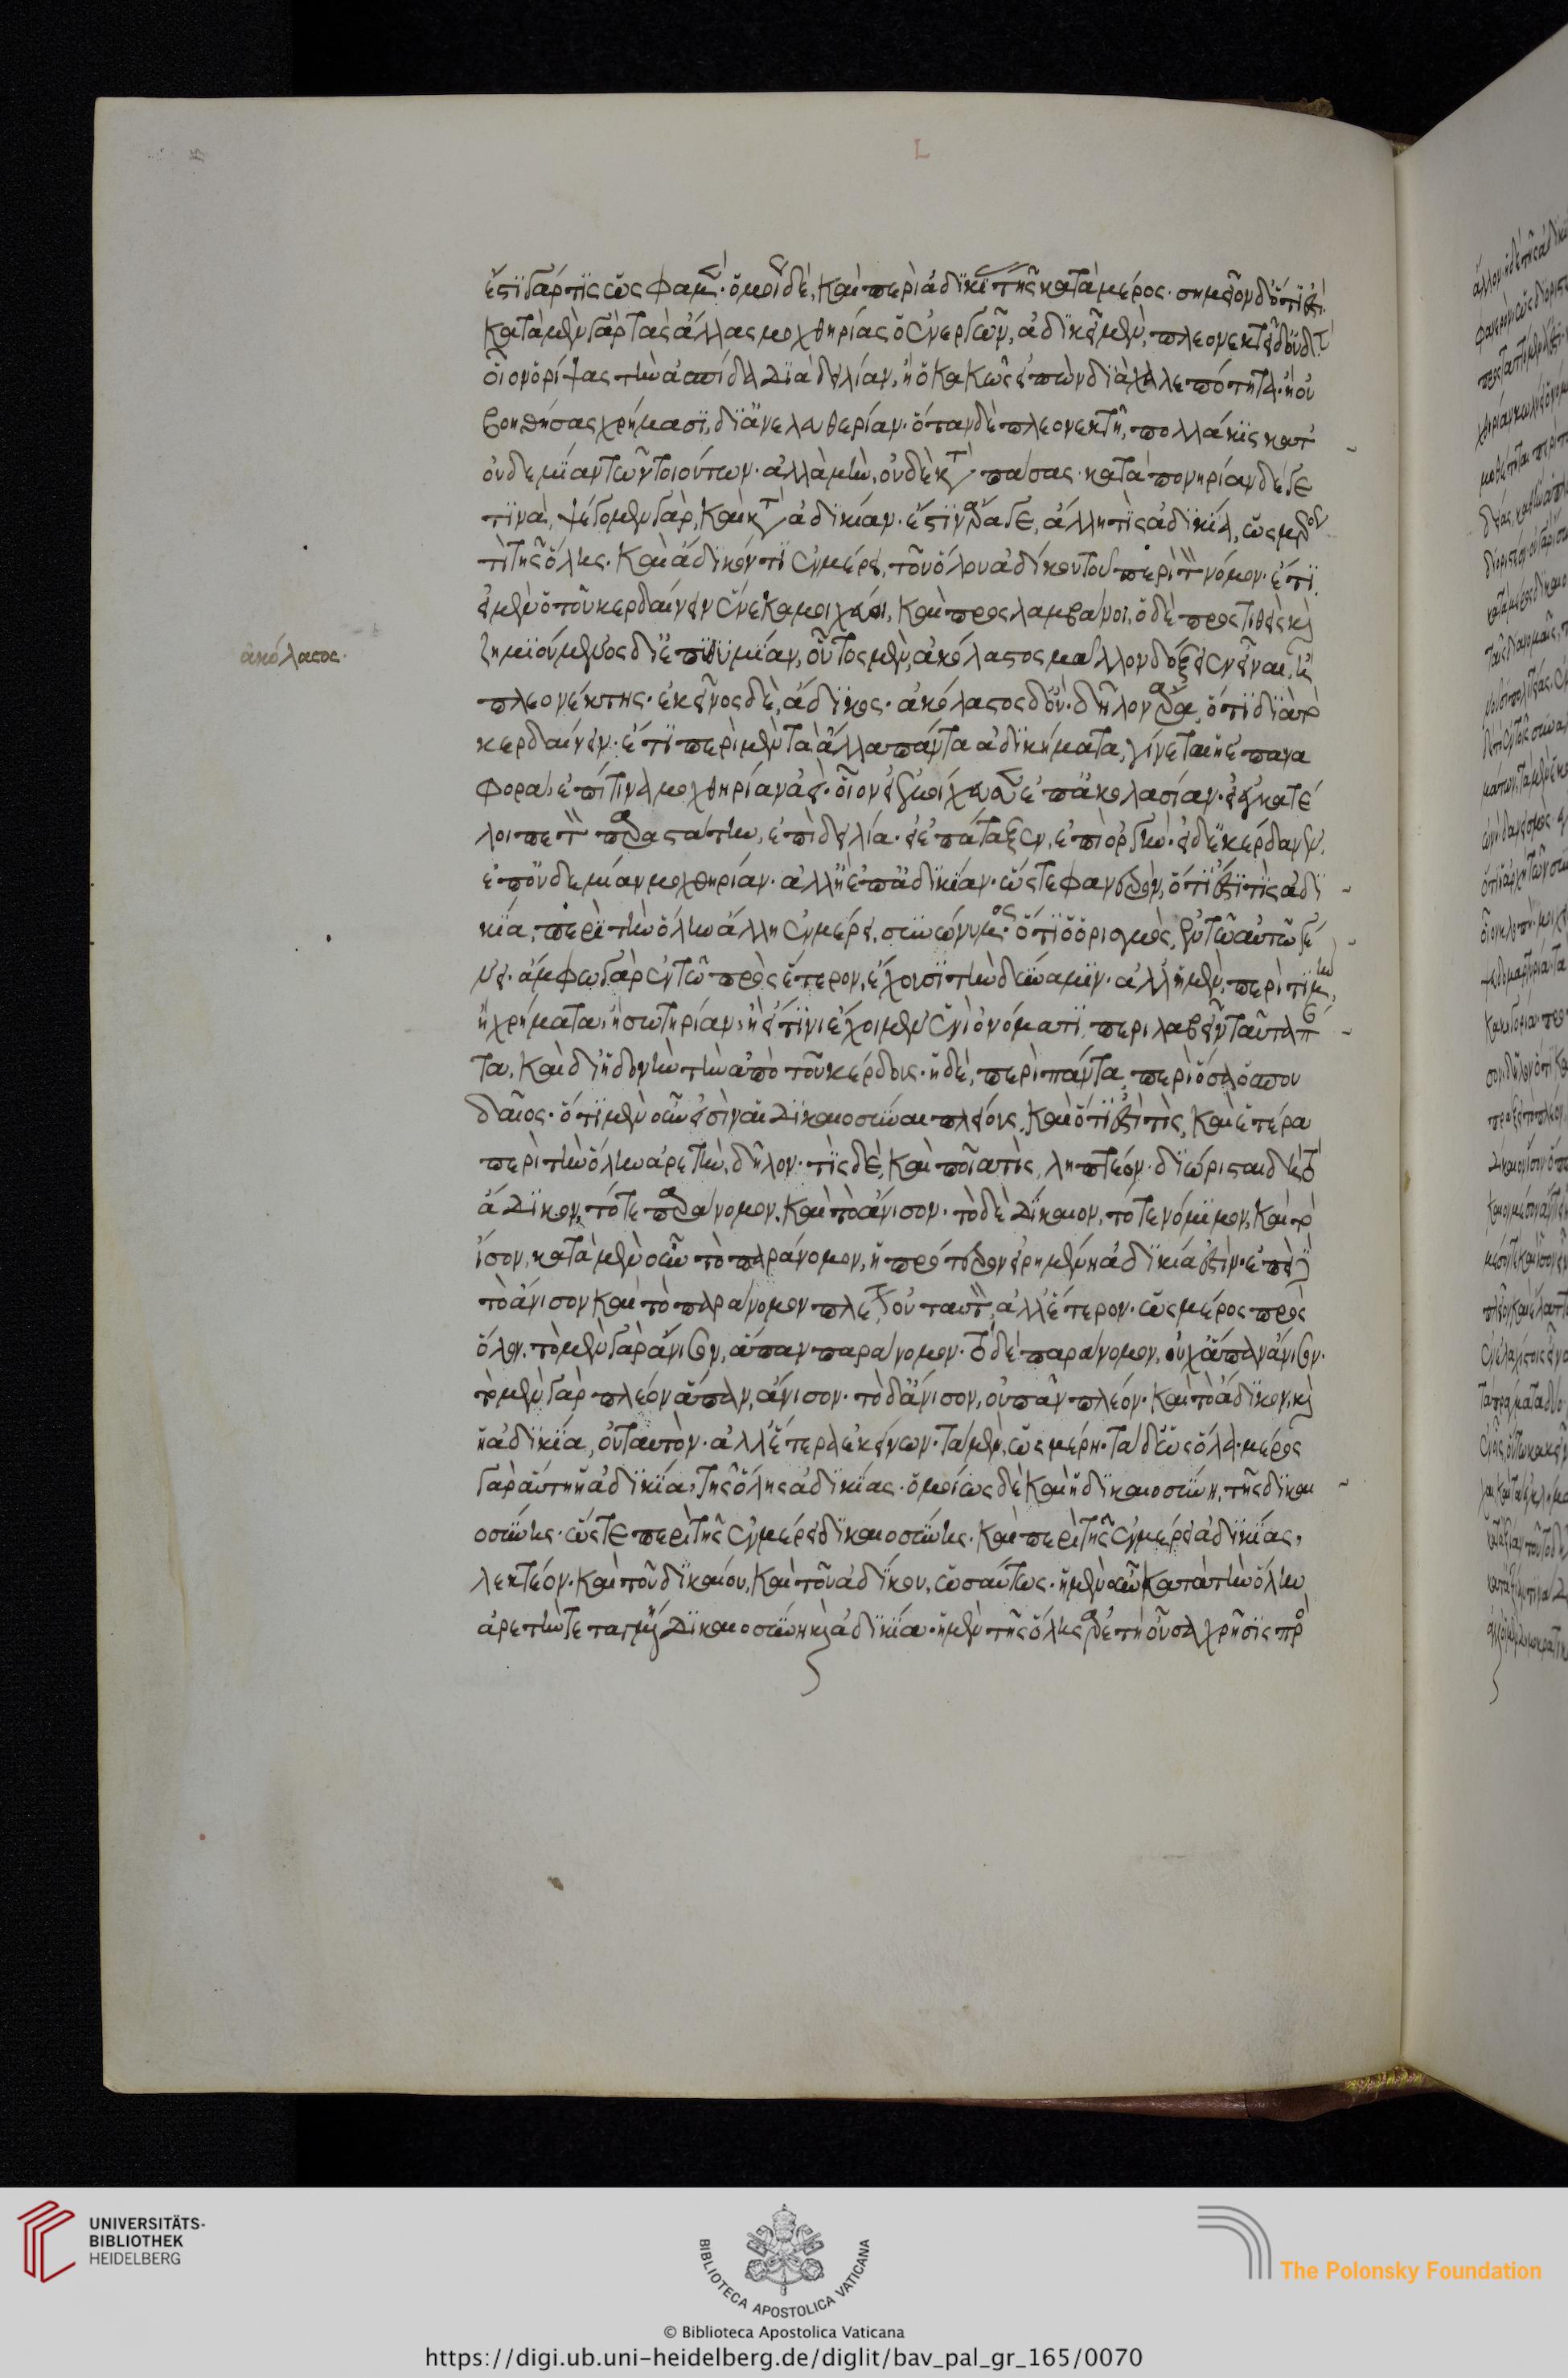 L
ἔστι γάρ τις ὥς φαμέν· ὁμοί δὲ, καὶ περὶ ἀδικί τῆς κατὰ μέρος· σημεῖον δ' ὅτι ἐστί·
κατὰ μὲν γὰρ τὰς ἄλλας μοχθηρίας ὁ ἐνεργῶν, ἀδικεῖ μὲν, πλεονεκτεῖ δ' οὐδέν·
οἷον ὁ ρίψας τὴν ἀσπίδα διὰ δειλίαν, ἢ ὁ κακῶς εἰπὼν διὰ χαλεπότητα· ἢ οὐ
βοηθήσας χρήμασι, δι' ἀνελευθερίαν· ὅταν δὲ πλεονεκτῇ, πολλάκις κατ'
οὐδεμίαν τῶν τοιούτων· ἀλλὰ μὴν, οὐδὲ κτ πάσας· κατὰ πονηρίαν δέ γε
τινὰ, ψέγομεν γὰρ, καὶ κτ ἀδικίαν· ἔστιν ἄρα γε, ἄλλη τὶς ἀδικία, ὡς μέρος
τὶ τῆς ὅλης. καὶ ἄδικόν τι ἐν μέρει, τοῦ ὅλου ἀδίκου τοῦ περὶ τ νόμον· ἔτι
εἰ μὲν ὁ τοῦ κερδαίνειν ἕνεκα μοιχεύοι, καὶ προσλαμβάνοι, ὁ δὲ προστιθεὶς κὶ
ζημιούμενος δι' ἐπιθυμίαν, οὗτος μὲν, ἀκόλαστος μᾶλλον δόξειεν εἶναι, ἢ
ἀκόλαστος·
πλεονέκτης· ἐκεῖνος δὲ, ἄδικος· ἀκόλαστος δ' οὔ· δῆλον ἄρα, ὅτι διὰ τὸ
κερδαίνειν· ἔτι περὶ μὲν τὰ ἄλλα πάντα ἀδικήματα, γίνεται ἡ ἐπανα
φορὰ, ἐπί τινα μοχθηρίαν ἀεί· οἷον εἰ ἐμοίχευσεν ἐπ' ἀκολασίαν· εἰ ἐγκατέ
λιπε τ παραστάτην, ἐπὶ δειλία· εἰ ἐπάταξεν, ἐπὶ ὀργήν· εἰ δ' ἐκέρδανεν,
ἐπ' οὐδεμίαν μοχθηρίαν· ἀλλ' ἢ ἐπ' ἀδικίαν· ὥστε φανερὸν, ὅτι ἐστί τις ἀδι
κία, περὶ τὴν ὅλην ἄλλη ἐν μέρει, συνώνυμος· ὅτι ὁ ὁρισμὸς, ἐν τῶ αὐτῶ γέ
νει· ἄμφω γὰρ ἐν τῶ πρὸς ἕτερον, ἔχουσι τὴν δύναμιν· ἀλλ' ἡ μὲν, περὶ τιμὴν,
ἢ χρήματα, ἢ σωτηρίαν, ἢ εἴ τινι ἔχοιμεν ἑνὶ ὀνόματι περιλαβεῖν ταῦτα πάν
τα, καὶ δι' ἡδονὴν τὴν ἀπὸ τοῦ κέρδους· ἡ δὲ, περὶ πάντα, περὶ ὅσα ὁ σπου
δαῖος· ὅτι μὲν οὖν εἰσὶν αἱ δικαιοσύναι πλείους, καὶ ὅτι ἐστί τὶς, καὶ ἑτέρα
περὶ τὴν ὅλην ἀρετὴν, δῆλον· τὶς δὲ, καὶ ποῖα τὶς, ληπτέον· διώρισται δὴ τὸ
ἄδικον, τό τε παράνομον, καὶ τὸ ἄνισον· τὸ δὲ δίκαιον, τό τε νόμιμον, καὶ τὸ
ἴσον, κατὰ μὲν οὖν τὸ παράνομον, ἡ πρότερον εἰρημένη ἀδικία ἐστίν· ἐπεὶ δὲ
τὸ ἄνισον καὶ τὸ παράνομον πλεῖον οὐ ταυτ, ἀλλ' ἕτερον· ὡς μέρος πρὸς
ὅλον. τὸ μὲν γὰρ ἄνισον, ἅπαν παράνομον· τὸ δὲ παράνομον, οὐχ ἅπαν ἄνισον·
τὸ μὲν γὰρ πλέον ἅπαν, ἄνισον· τὸ δ' ἄνισον, οὐ πᾶν πλέον· καὶ τὸ ἄδικον, κὶ
ἡ ἀδικία, οὐ ταυτὸν· ἀλλ' ἕτερα ἐκείνων· τὰ μὲν, ὡς μέρη· τὰ δ' ὡς ὅλα· μέρος
γὰρ αὕτη ἡ ἀδικία, τῆς ὅλης ἀδικίας· ὁμοίως δὲ καὶ ἡ δικαιοσύνη, τῆς δικαι
οσύνης· ὥστε περὶ τῆς ἐν μέρει δικαιοσύνης· καὶ περὶ τῆς ἐν μέρει ἀδικίας,
λεκτέον· καὶ τοῦ δικαίου, καὶ τοῦ ἀδίκου, ὡσαύτως· ἡ μὲν οὖν κατὰ τὴν ὅλην
ἀρετὴν τεταγμένη δικαιοσύνη κὶ ἀδικία· ἡ μὲν τῆς ὅλης ἀρετῆ οὖσα χρῆσις πρὸς
UNIVERSITÄTS-
BIBLIOTHEK
HEIDELBERG
BIBLIOTECA APOSTOLICA VATICANA
The Polonsky Foundation
© Biblioteca Apostolica Vaticana
https://digi.ub.uni-heidelberg.de/diglit/bav_pal_gr_165/0070